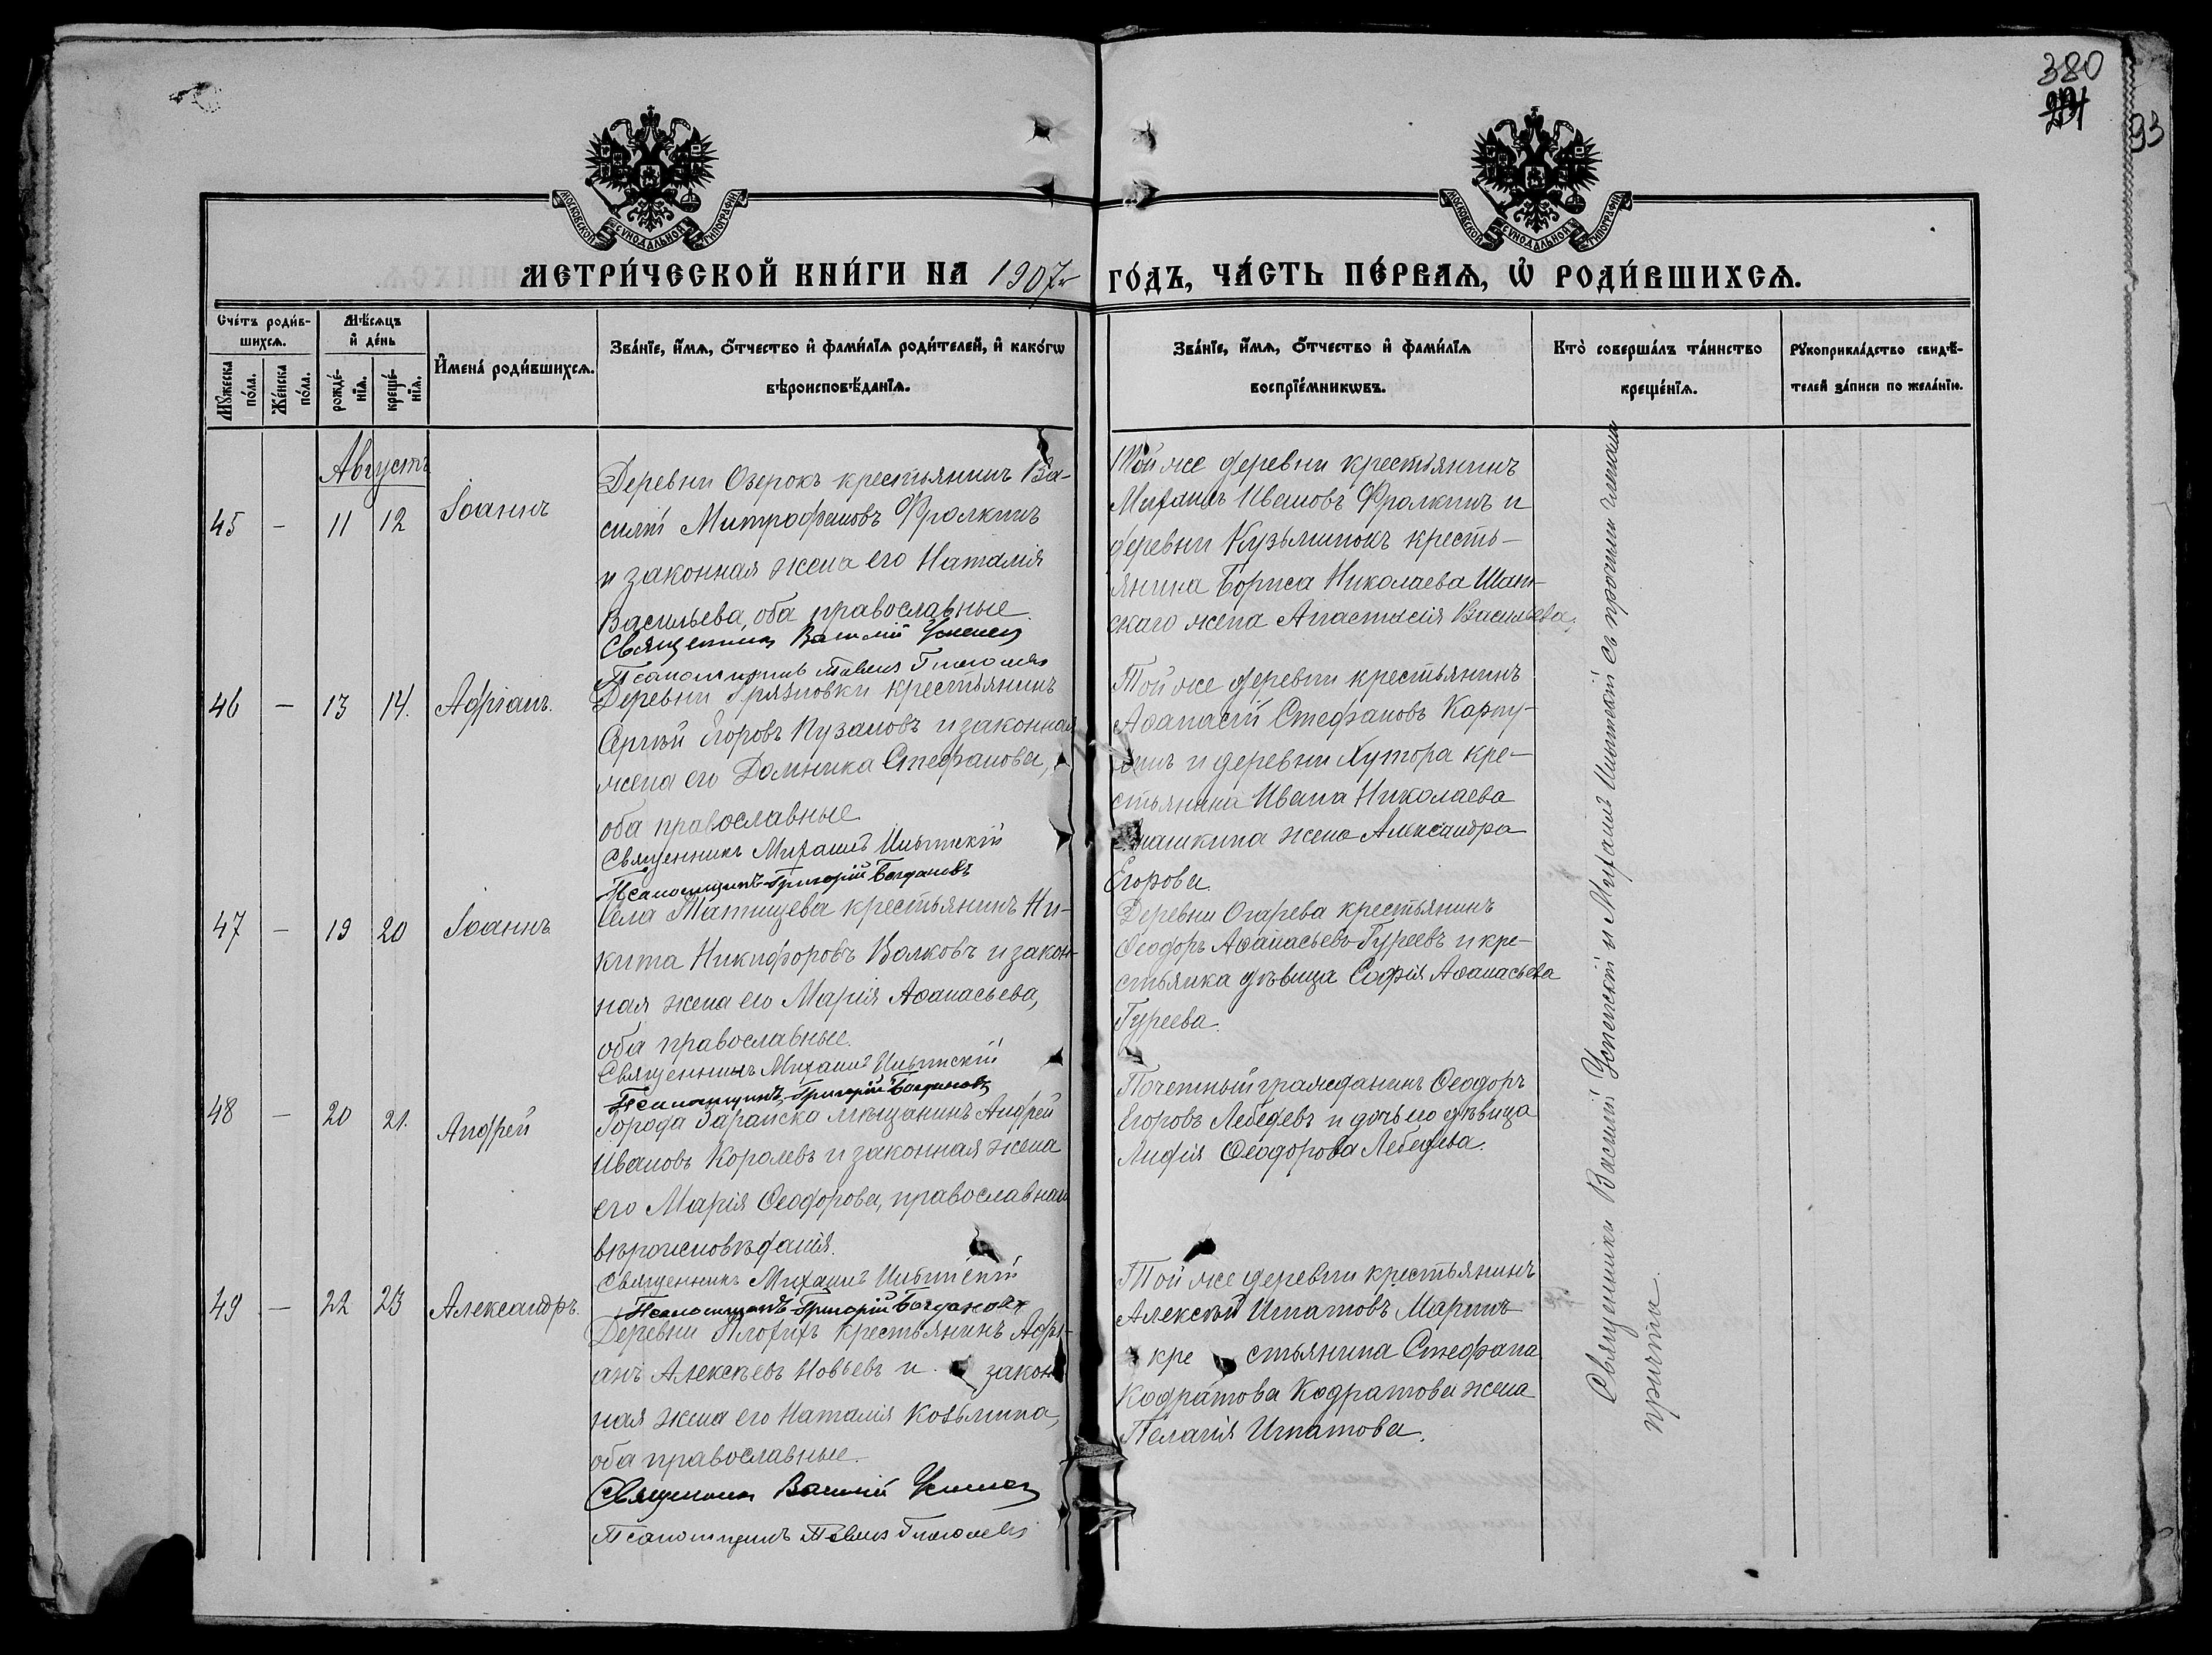 380
93
МОСКОВСКОЙ СѴНОДАЛЬНОЙ ТИПОГРАФІИ
МОСКОВСКОЙ СѴНОДАЛЬНОЙ ТИПОГРАФІИ
МЕТРИ́ЧЕСКОЙ КНИ́ГИ НА 1907 ГО́ДЪ, ЧА́СТЬ ПЕ́РВАѦ, Ѡ҆ РОДИ́ВШИХСѦ.
Сче́тъ роди́в-
шихсѧ.
Мꙋ́жеска по́ла.
Же́нска по́ла.
Мѣ́сѧцъ
и҆ де́нь
рожде́-
нїѧ.
креще́-
нїѧ.
И҆мена̀ роди́вшихсѧ.
Зва́нїе, и҆́мѧ, ѻ҆́тчество и҆ фами́лїѧ роди́телей, и҆ како́гѡ
вѣроисповѣ́данїѧ.
Зва́нїе, и҆́мѧ, ѻ҆́тчество и҆ фами́лїѧ
воспрїе́мникѡвъ.
Кто̀ соверша́лъ та́инство
креще́нїѧ.
Рꙋкоприкла́дство свидѣ́-
телей за́писи по жела́нїю.
Августъ
45 - 11 12 Іоаннъ
Деревни Озерокъ крестьянинъ Ва-
силій Митрофановъ Фролкинъ
и законная жена его Наталія
Васильева, оба православные.
Священникъ Василій Успенск
Псаломщикъ Павелъ Глаголевъ
Той же деревни крестьянинъ
Михаилъ Ивановъ Фролкинъ и
деревни Кузьминокъ кресть-
янина Бориса Николаева Шат-
скаго жена Анастасія Васильева.
46 - 13 14. Адріанъ.
Деревни Грязновки крестьянинъ
Сергѣй Егоровъ Пузановъ и законная
жена его Домника Стефанова,
оба православные
Священникъ Михаилъ
Псаломщикъ Григорій Богдановъ
Той же деревни крестьянинъ
Аѳанасій Стефановъ Карпу-
и деревни Хутора кре-
стьянина Ивана Николаева
жена Александра
Егорова.
47 - 19 20 Іоаннъ
Села Татищева крестьянинъ Ни-
кита Никифоровъ Волковъ и закон-
ная жена его Марія Аѳанасьева,
оба православные.
Священникъ Михаилъ
Псаломщикъ Григорій Богдановъ
Деревни Огарева крестьянинъ
Ѳеодоръ Аѳанасьевъ Гуреевъ и кре-
стьянка дѣвица Софія Аѳанасьева
Гуреева.
48 - 20 21. Андрей
Города Зарайска мѣщанинъ Андрей
Ивановъ Королевъ и законная жена
его Марія Ѳеодорова, православнаго
вѣроисповѣданія.
Священникъ Михаилъ
Псаломщикъ Григорій Богдановъ
Почетный гражданинъ Ѳеодоръ
Егоровъ Лебедевъ и дочь его дѣвица
Лидія Ѳеодорова Лебедева.
49 - 22 23 Александръ.
Деревни Плохихъ крестьянинъ Адрі-
анъ Алексѣевъ и закон-
ная жена его Наталія Козьмина,
оба православные.
Священникъ Василій Успенск
Псаломщикъ Павелъ Глаголевъ
Той же деревни крестьянинъ
Алексѣй Игнатовъ
кре стьянина Стефана
Кодратова Кодратова жена
Пелагія Игнатова.
Священники Василій Успенскій и Михаилъ съ прочими членами
причта.